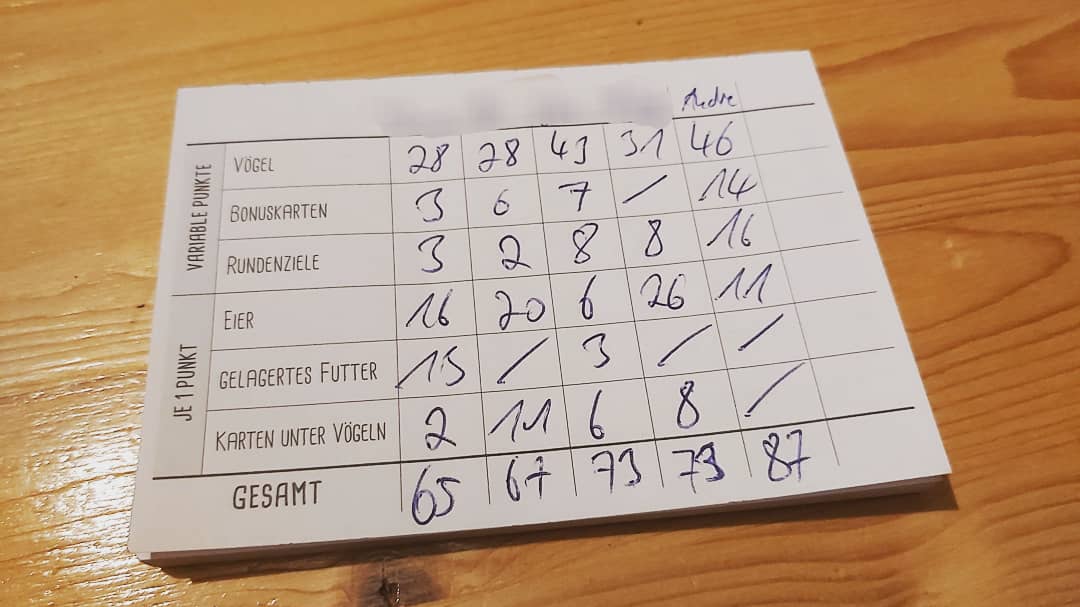 Andre
VÖGEL 28 28 43 31 46
BONUSKARTEN 3 6 7 / 14
RUNDENZIELE 3 2 8 8 16
VARIABLE PUNKTE
EIER 16 20 6 26 11
GELAGERTES FUTTER 13 / 3 / /
KARTEN UNTER VÖGELN 2 11 6 8 /
JE 1 PUNKT
GESAMT 65 67 73 73 87